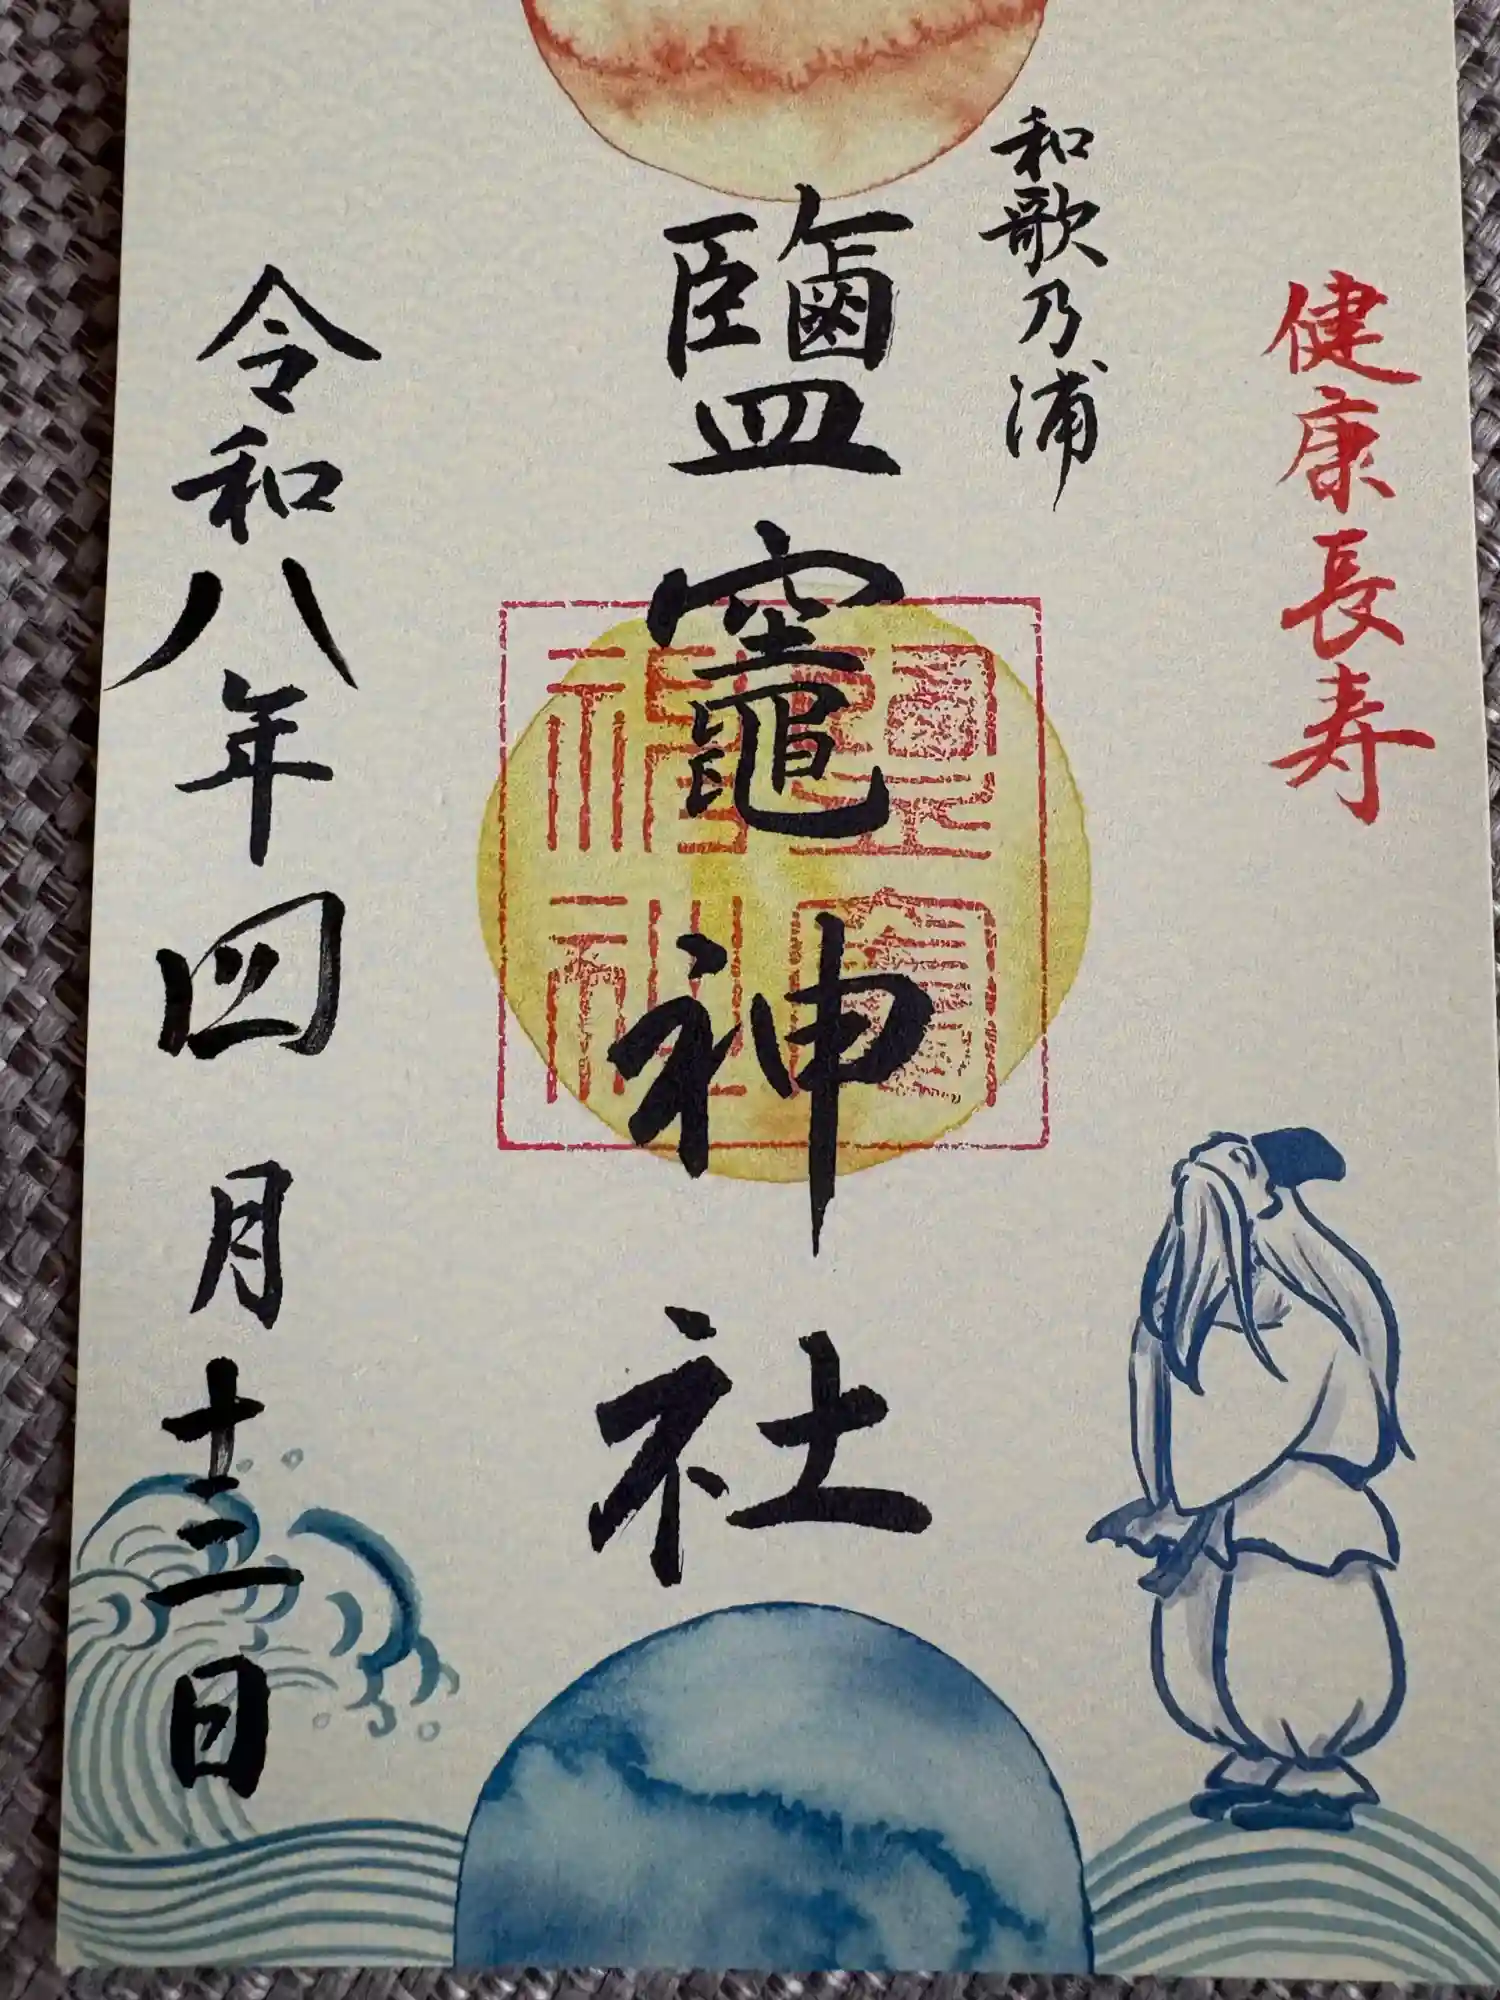 健康長寿
和歌乃浦
鹽竈神社
鹽竈神社
令和八年四月十三日